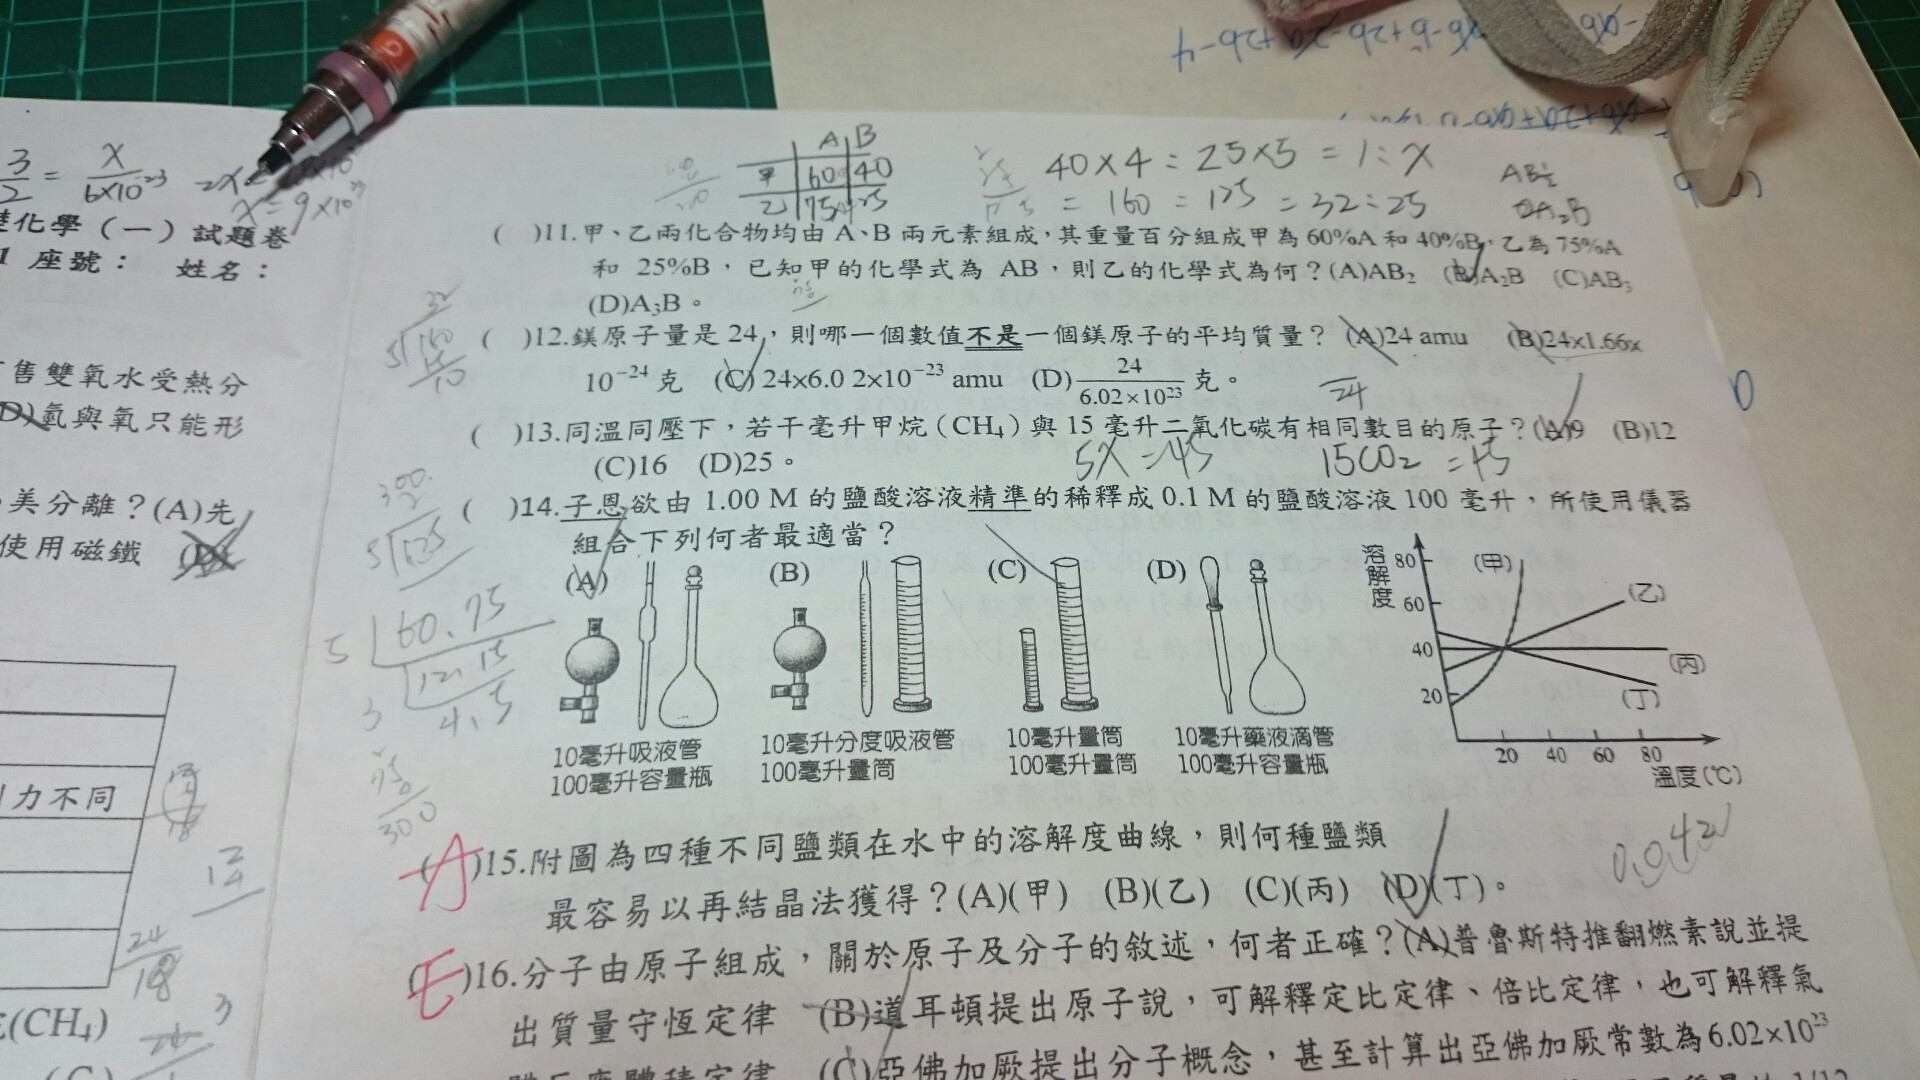 3/2 = x/6×10²³
x = 9×10²³
化學（一）試題卷
座號： 姓名：
售雙氧水受熱分
氫與氧只能形
美分離？(A)先
使用磁鐵
力不同
(CH₄)
A B
甲 60 40
乙 75 25
40×4 : 25×5 = 1 : x
= 160 : 125 = 32 : 25
( )11.甲、乙兩化合物均由 A、B 兩元素組成，其重量百分組成甲為 60%A 和 40%B，乙為 75%A
和 25%B，已知甲的化學式為 AB，則乙的化學式為何？(A)AB₂ (B)A₂B (C)AB₃
(D)A₃B。
( )12.鎂原子量是 24，則哪一個數值不是一個鎂原子的平均質量？ (A)24 amu (B)24x1.66x
10⁻²⁴ 克 (C) 24x6.0 2x10⁻²³ amu (D) 24/6.02×10²³ 克。
( )13.同溫同壓下，若干毫升甲烷（CH₄）與 15 毫升二氧化碳有相同數目的原子？(A)9 (B)12
(C)16 (D)25。
5X = 45 15CO₂ = 45
( )14.子恩欲由 1.00 M 的鹽酸溶液精準的稀釋成 0.1 M 的鹽酸溶液 100 毫升，所使用儀器
組合下列何者最適當？
(A) (B) (C) (D)
10毫升吸液管 10毫升分度吸液管 10毫升量筒 10毫升藥液滴管
100毫升容量瓶 100毫升量筒 100毫升量筒 100毫升容量瓶
溶解度
80
60
40
20
(甲)
(乙)
(丙)
(丁)
20 40 60 80
溫度(℃)
5 60.75
3 12.15
4.5
300
24
18
(A)15.附圖為四種不同鹽類在水中的溶解度曲線，則何種鹽類
最容易以再結晶法獲得？(A)(甲) (B)(乙) (C)(丙) (D)(丁)。
(E)16.分子由原子組成，關於原子及分子的敘述，何者正確？(A)普魯斯特推翻燃素說並提
出質量守恆定律 (B)道耳頓提出原子說，可解釋定比定律、倍比定律，也可解釋氣
體反應體積定律 (C)亞佛加厥提出分子概念，甚至計算出亞佛加厥常數為6.02×10²³